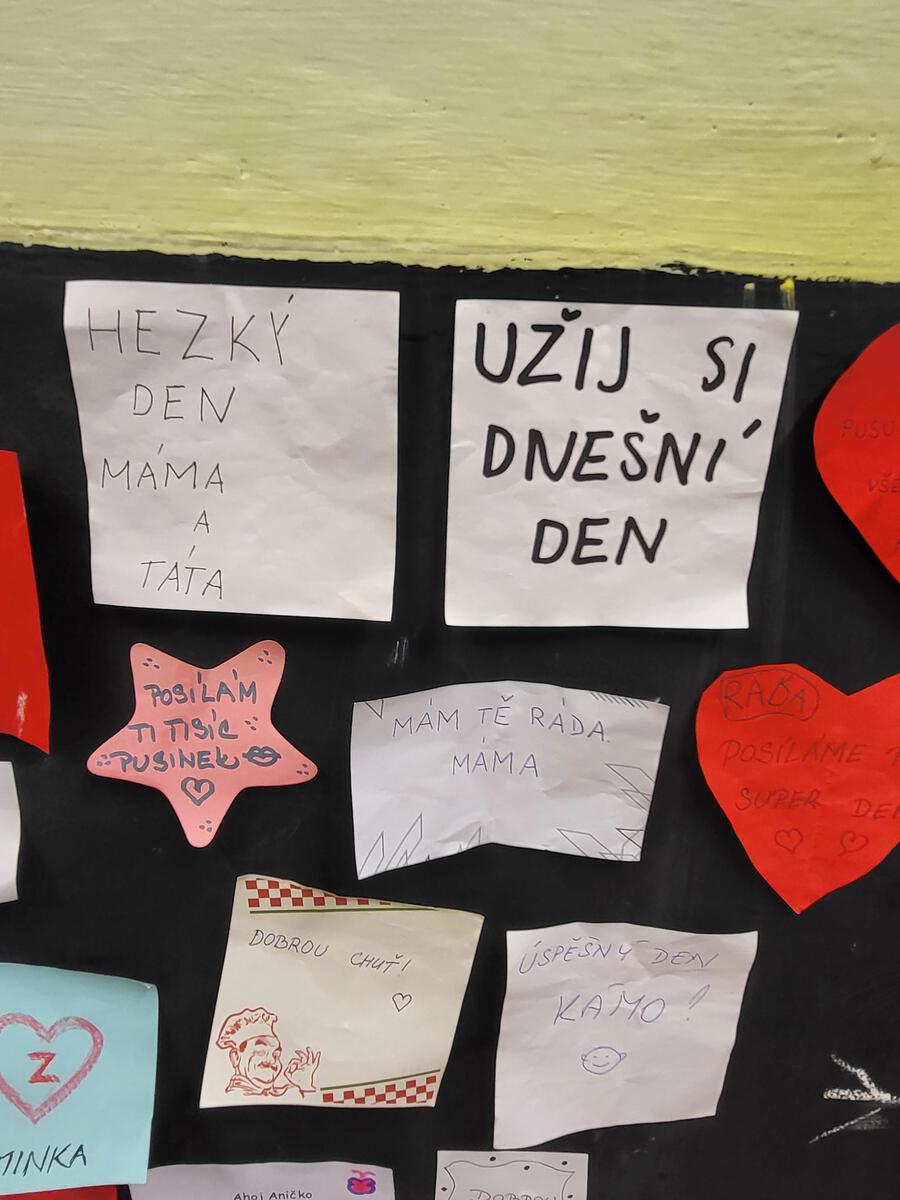 HEZKÝ
DEN
MÁMA
A
TÁTA
UŽIJ SI
DNEŠNÍ
DEN
POSÍLÁM
TI TISÍC
PUSINEK
MÁM TĚ RÁDA
MÁMA
RÁĎA
POSÍLÁME
SUPER DEN
DOBROU CHUŤ!
ÚSPĚŠNÝ DEN
KÁMO!
Z
MINKA
Ahoj Aničko
DOBROU